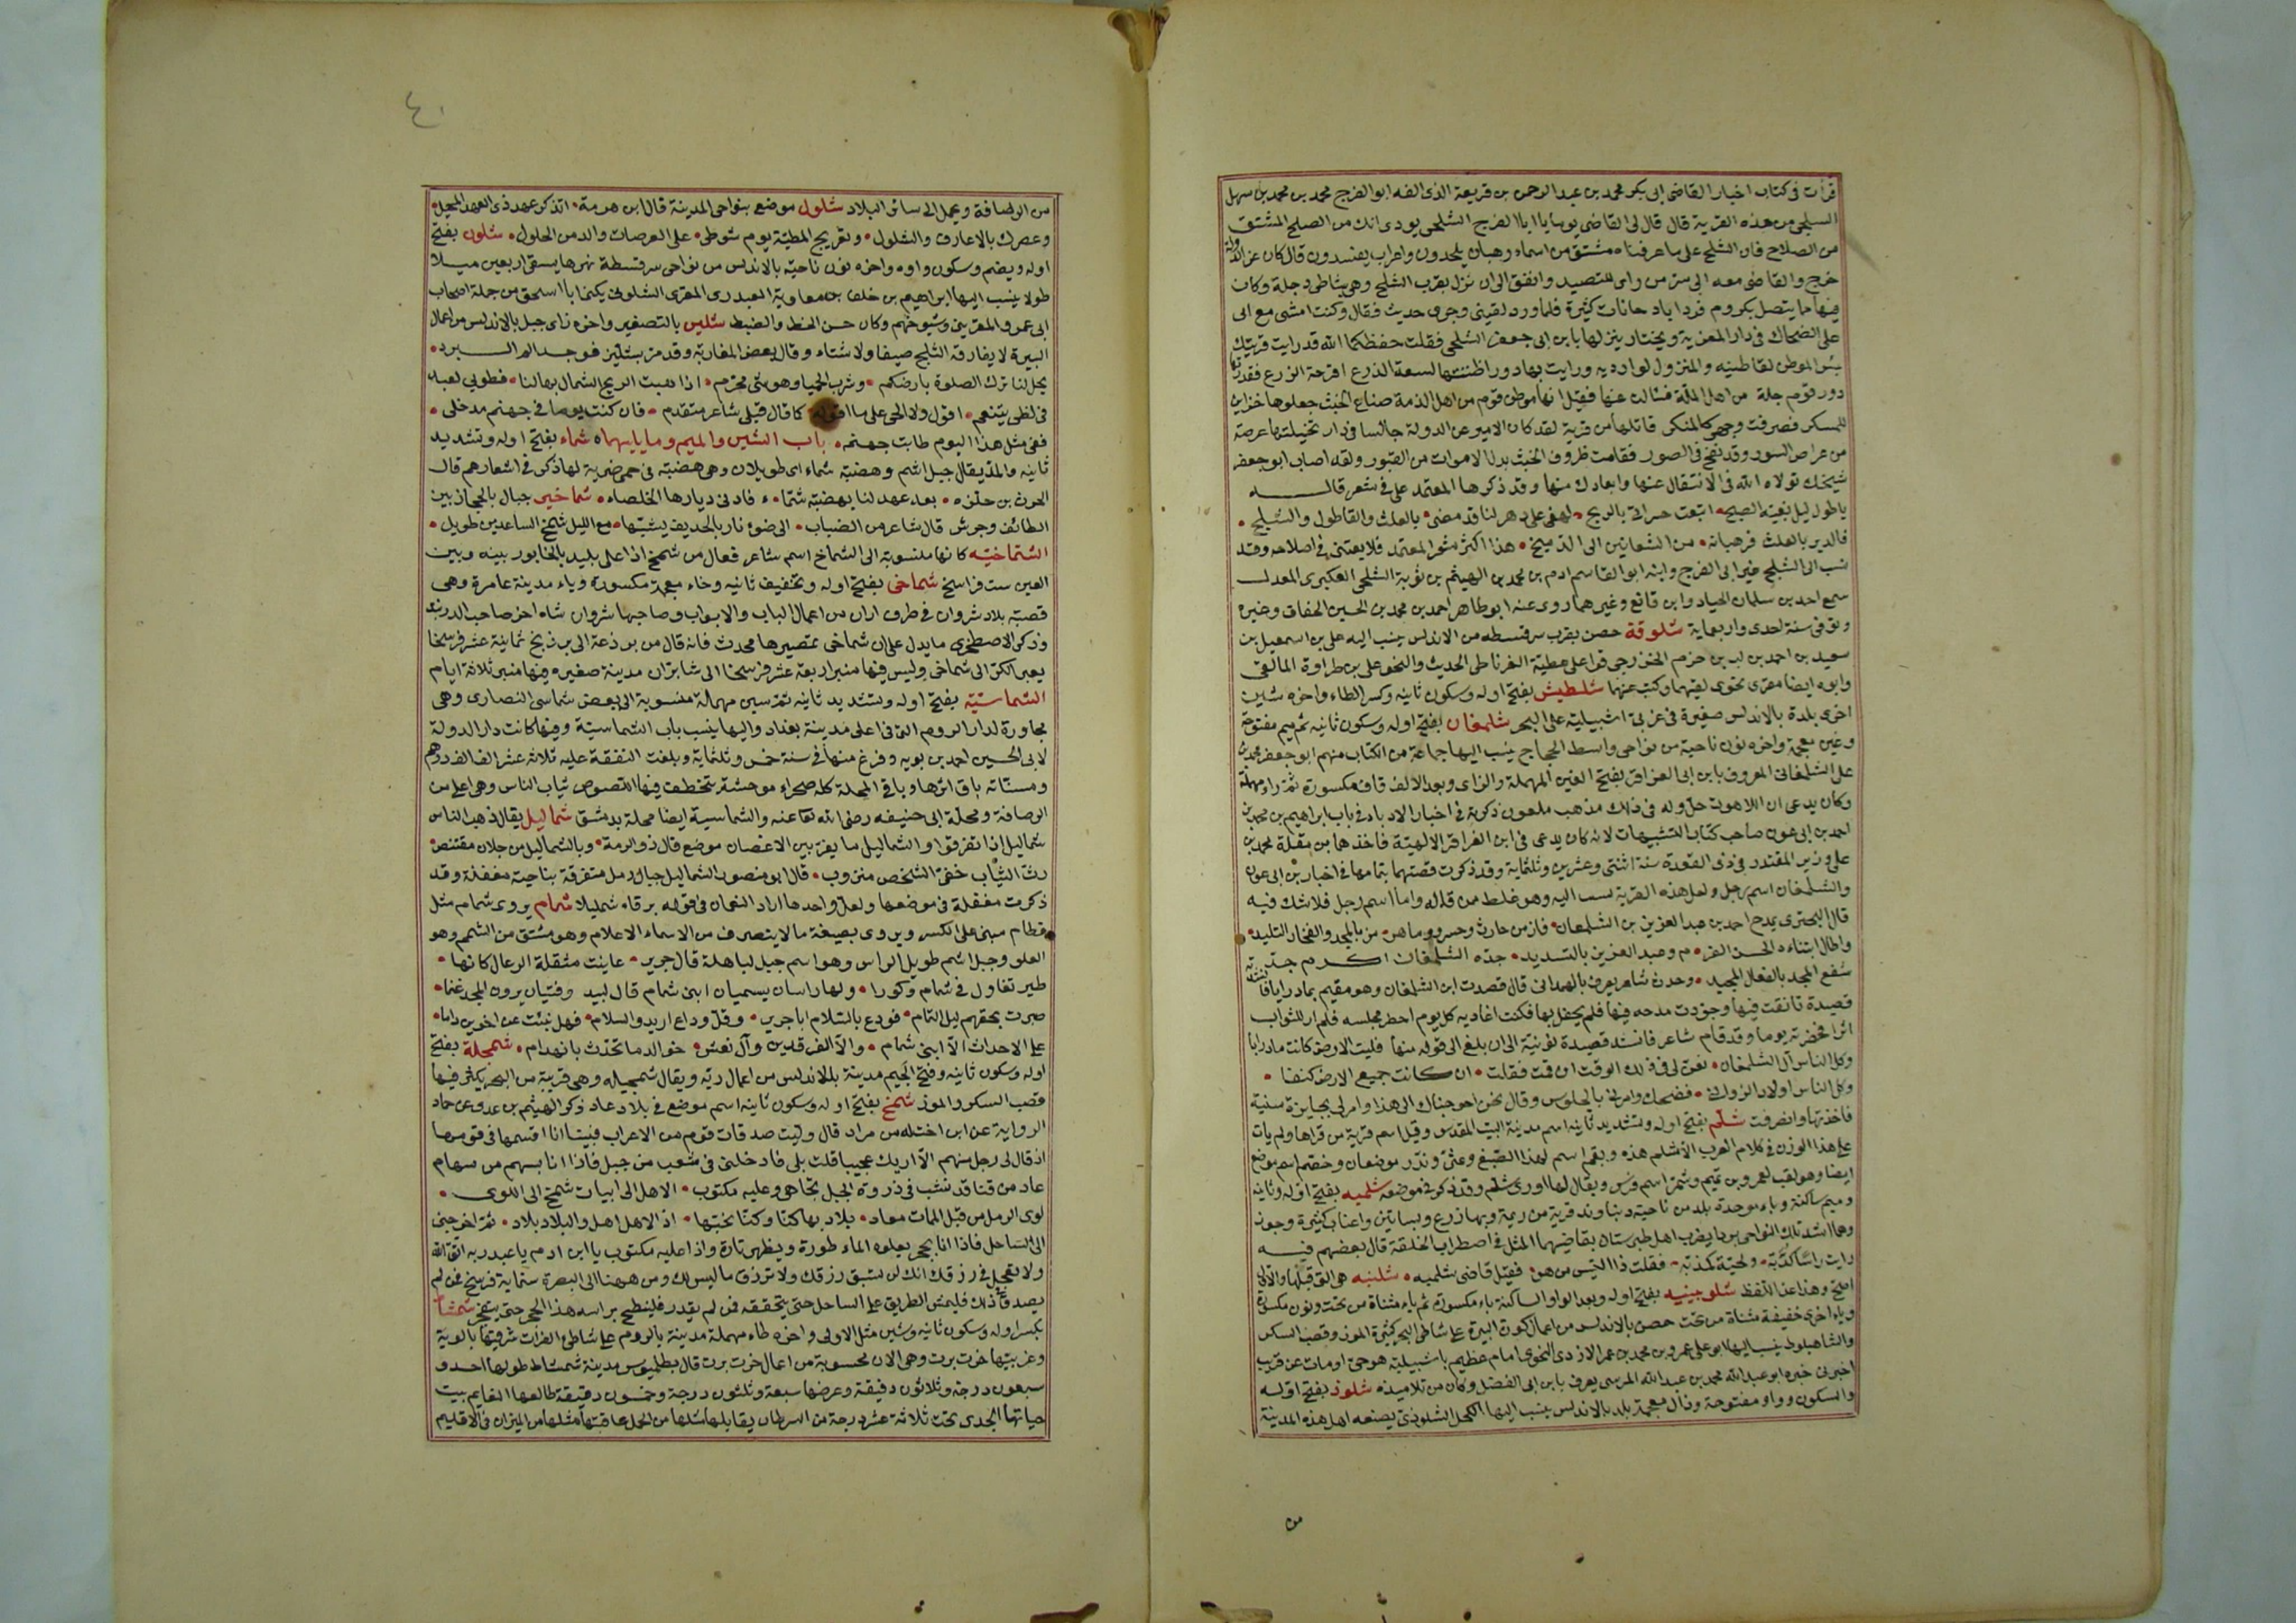 قرأت فى كتاب اخبار القاضى ابى بكر محمد بن عبد الرحمن بن قريعة الذى الفه ابو الفرج محمد بن محمد بن سهل
الشلجى من هذه القرية قال قال لى القاضى يوما يا ابا الفرج الشلجى يودى انك من الصلح المشتق
من الصلاح فان الشلج على ما عرفناه مشتق من اسماء رهبان يلحدون واعراب يفسدون قال كان عز الدولة
خرج والقاضى معه الى سر من راى للتصيد واتفق الى ان نزل بقرب الشلج وهى بشاطى دجلة وكان
فيها ما يتصل بكروم فردا باد حانات كثيرة فلما ورد لقينى وجرى حديث فقال وكنت امشى مع ابى
على الضحاك فى دار المعزية ويختار ينزلها بابن ابى جعفر الشلجى فقلت حفظكما الله قد رايت قريتك
بئس الموطن لقاطنيه والمنزل لوارديه ورايت بها دورا ظننتها لسعة الذرع اقرحة الزرع فقدرتها
دور قوم جلة من اهل الملة فسالت عنها فقيل انها موطن قوم من اهل الذمة صناع الخبث جعلوها خزاين
للمسكر فصرفت وجهى كالمنكر قاتلها من قرية لقد كان الامير عز الدولة جالسا فى دار تخيلتها عرصة
من عراص السور وقد نفخ فى الصور فقامت ظروف الخبث بدل الاموات من القبور ولقد اصاب ابو جعفر
شيخك تولاه الله فى الانتقال عنها وابعادك منها وقد ذكرها المعتمد على فى شعر قاله
يا طول ليلى بغية الصبح اتبعت حسراتى بالربح لهفى على دهر لنا قد مضى بالعلث والقاطول والشلج
فالدير بالعلث فرهبانه من الشعانين الى الذبيح هذا اكثر شعر المعتمد فلا يعتنى فى اصلاحه وقد
نسب الى الشلج غير ابى الفرج وابنه ابو القاسم ادم بن محمد بن الهيثم بن توبة الشلجى العكبرى المعدل
سمع احمد بن سلمان النجاد وابن قانع وغيرهما روى عنه ابو طاهر احمد بن محمد بن الحسين الخفاف وغيره
وتوفى سنة احدى واربعماية شلوقة حصن بقرب سرقسطه من الاندلس ينسب اليه على بن اسمعيل بن
سعيد بن احمد بن لب بن حزم الخزرجى قرا على عطية الغرناطى الحديث والنحو على بن طراوة المالقى
وابوه ايضا مقرى نحوى لقيتهما وكتبت عنهما شلطيش بفتح اوله وسكون ثانيه وكسر الطاء واخره شين
اخرى بلدة بالاندلس صغيرة فى غربى اشبيلية على البحر شلمغان بفتح اوله وسكون ثانيه ثم ميم مفتوحة
وغين معجمة واخره نون ناحية من نواحى واسط الحجاج ينسب اليها جماعة من الكتاب منهم ابو جعفر محمد بن
على الشلمغانى المعروف بابن ابى العزاقر بفتح العين المهملة والزاى وبعد الالف قاف مكسورة ثم راء مهملة
وكان يدعى ان اللاهوت حل وله فى ذلك مذهب ملعون ذكرته فى اخبار الادباء فى باب ابراهيم بن محمد بن
احمد بن ابى عون صاحب كتاب التشبيهات لانه كان يدعى فى ابن العزاقر الالهية فاخذهما بن مقلة محمد بن
على وزير المقتدر فى ذى القعدة سنة اثنتى وعشرين وثلثماية وقد ذكرت قصتهما بتمامها فى اخبار بن ابى عون
والشلمغان اسم رجل ولعل هذه القرية نسبت اليه وهو غلط ممن قاله واما اسم رجل فلا شك فيه
قال البحترى يمدح احمد بن عبد العزيز بن الشلمغان فاز من حارث وخسرو وما هر من بالمجد والفخار التليد
واطال ابتناءه الحسن القر م وعبد العزيز بالتسديد جده الشلمغان اكرم جد
شفع المجد بالفعال المجيد وحدث شاعر يعرف بالهمدانى قال قصدت ابن الشلمغان وهو مقيم بمادرايا فانشدته
قصيدة تانقت فيها وجودت مدحه فيها فلم يحفل بها فكنت اغاديه كل يوم احضر مجلسه فلم ار للثواب
اثرا فحضرته يوما وقد قام شاعر فانشد قصيدة نونية الى ان بلغ الى قوله منها فليت الارض كانت مادرايا
وكل الناس آل الشلمغان فعن لى فى ذلك الوقت ان قمت فقلت ان كانت جميع الارض كنفا
وكل الناس اولاد الزوانى فضحك وامرنى بالجلوس وقال نحن احوجناك الى هذا وامر لى بجايزة سنية
فاخذتها وانصرفت شلم بفتح اوله وتشديد ثانيه اسم مدينة البيت المقدس وقيل اسم قرية من قراها ولم يات
على هذا الوزن فى كلام العرب الا شلم هذه وبقم اسم لهذا الصبغ وعثر وبذر موضعان وخضم اسم موضع
ايضا وهو لقب لعمرو بن تميم وشمر اسم فرس ويقال لها اورى شلم وقد ذكر فى موضعه شلمبه بفتح اوله وثانيه
وميم ساكنة وباء موحدة بلد من ناحية دنباوند قريبة من ويمة وبها زرع وبساتين واعناب كثيرة وجوز
وهما اشد تلك النواحى بردا يضرب اهل طبرستان بقاضيهما المثل فى اضطراب الخلقة قال بعضهم فيه
رايت راسا كدبه ولحية كمذبه فقلت ذا التيس من هو فقيل قاضى شلمبه شلنبه هى التى قبلها والاول
اصح وهذا عند اللفظ شلوبينيه بفتح اوله وبعد الواو الساكنة باء مكسورة ثم ياء مثناة من تحت ونون مكسورة
وياء اخرى خفيفة مثناة من تحت حصن بالاندلس من اعمال كورة البيرة على شاطى البحر كثيرة الموز وقصب السكر
والشاهبلوط ينسب اليها ابو على عمرو بن محمد بن عمر الازدى النحوى امام عظيم باشبيلية هو حى او مات عن قريب
اخبرنى خبره ابو عبد الله محمد بن عبد الله المرسى يعرف بابن ابى الفضل وكان من تلاميذه شلوذ بفتح اوله
والسكون وواو مفتوحة وذال معجمة بلد بالاندلس ينسب اليها الكحل الشلوذى يصنعه اهل هذه المدينة
من
٤٠
من الرصافة ويحمل الى سائر البلاد شلول موضع بنواحى المدينة قال ابن هرمة اتذكر عهد ذى العهد المحيل
وعصرك بالاعارف والشلول وتعريج المطية يوم شوطى على العرصات والدمن الحلول شلون بفتح
اوله ويضم وسكون واوه واخره نون ناحية بالاندلس من نواحى سرقسطة نهرها يسقى اربعين ميلا
طولا ينسب اليها ابراهيم بن خلف بن معاوية العبدرى المقرى الشلونى يكنى ابا اسحق من جملة اصحاب
ابى عمرو المقرئين وشيوخهم وكان حسن الخط والضبط شلير بالتصغير واخره زاى جبل بالاندلس من اعمال
البيرة لا يفارقه الثلج صيفا ولا شتاء وقال بعض المغاربة وقد مر بشلير فوجد الم البرد
يحل لنا ترك الصلوة بارضكم وشرب الحميا وهو شئ محرم اذا هبت الريح الشمال بها لنا فطوبى لعبد
فى لظى يتنعم اقول ولا الحى على ما اقوله كما قال قبلى شاعر متقدم فان كنت يوما فى جهنم مدخلى
ففى مثل هذا اليوم طابت جهنم باب الشين والميم وما يليهما شماء بفتح اوله وتشديد
ثانيه والمد يقال جبل اشم وهضبة شماء اى طويلان وهى هضبة فى حمى ضرية لها ذكر فى اشعارهم قال
الحرث بن حلزه بعد عهد لنا بهضبة شما ء فادنى ديارها الخلصاء شماخير جبال بالحجاز بين
الطائف وجرش قال شاعر من الضباب الى ضوء نار بالحديف يشبها مع الليل شمخ الساعدين طويل
الشماخية كانها منسوبة الى الشماخ اسم شاعر فعال من شمخ اذا على بليد بالخابور بينه وبين
العين ست فراسخ شماخى بفتح اوله وتخفيف ثانيه وخاء معجمة مكسورة وياء مدينة عامرة وهى
قصبة بلاد شروان فى طرف اران من اعمال الباب والابواب وصاحبها شروان شاه اخو صاحب الدربند
وذكر الاصطخرى ما يدل على ان شماخى تمصيرها محدث فانه قال من برذعة الى برزنج ثمانية عشر فرسخا
يعبر الكر الى شماخى وليس فيها منبر اربعة عشر فرسخا الى شابران مدينة صغيرة فيها منبر ثلاثة ايام
الشماسية بفتح اوله وتشديد ثانيه ثم سين مهملة منسوبة الى بعض شماسى النصارى وهى
مجاورة لدار الروم التى فى اعلى مدينة بغداد واليها ينسب باب الشماسية وفيها كانت دار الدولة
لابى الحسين احمد بن بويه وفرغ منها فى سنة خمس وثلثماية وبلغت النفقة عليه ثلاثة عشر الف الف درهم
ومسناته باق اثرها وباقى المحلة كله صحراء موحشة يتخطف فيها اللصوص ثياب الناس وهى اعلى من
الرصافة ومحلة ابى حنيفه رضى الله تعا عنه والشماسية ايضا محلة بدمشق شماليل يقال ذهب الناس
شماليل اذا تفرقوا والشماليل ما يفرق بين الاغصان موضع قال ذو الرمة وبالشماليل من جلان مقتنص
رث الثياب خفى الشخص منزوب قال ابو منصور الشماليل جبال رمل متفرقة بناحية معقلة وقد
ذكرت معقلة فى موضعها ولعل واحدها اراد النعمان فى قوله برقاء شمليلا شمام يروى شمام مثل
قطام مبنى على الكسر ويروى بصيغة ما لا ينصرف من الاسماء الاعلام وهو مشتق من الشمم وهو
العلو وجبل اشم طويل الراس وهو اسم جبل لباهلة قال جرير عاينت مشعلة الرعال كانها
طير تغاول فى شمام وكورا ولها راسان يسميان ابنى شمام قال لبيد وفتيان يرون المجد غنما
صبرت بحقهم ليل التمام فودع بالسلام ابا جرير وقل وداع اربد والسلام فهل نبئت عن اخوين داما
على الاحداث الا ابنى شمام والا الفرقدين وآل نعش خوالد ما تحدث بانهدام شمجلة بفتح
اوله وسكون ثانيه وفتح الجيم مدينة بالاندلس من اعمال ريه ويقال شمجيله وهى قريبة من البحر يكثر فيها
قصب السكر والموز شمخ بفتح اوله وسكون ثانيه اسم موضع فى بلاد عاد ذكر الهيثم بن عدى عن حماد
الرواية عن ابن اختله من مراد قال وليت صدقات قوم من الاعراب فبينا انا اقسمها فى قومها
اذ قال لى رجل منهم الا اريك عجيبا قلت بلى فادخلنى فى شعب من جبل فاذا انا بسهم من سهام
عاد من قنا قد نشب فى ذروة الجبل تجاهى وعليه مكتوب الا هل الى ابيات شمخ الى اللوى
لوى الرمل من قبل الممات معاد بلاد بها كنا وكنا نحبها اذ الاهل اهل والبلاد بلاد ثم اخرجنى
الى الساحل فاذا انا بحجر يعلوه الماء طورة ويظهر تارة واذا عليه مكتوب يا ابن ادم يا عبد ربه اتق الله
ولا تعجل فى رزقك انك لن تسبق رزقك ولا ترزق ما ليس لك ومن ههنا الى البصرة ستماية فرسخ فمن لم
يصدق فى ذلك فليمش الطريق على الساحل حتى يتحققه فمن لم يقدر فلينطح براسه هذا الحجر حتى ينفجر شمشاط
بكسر اوله وسكون ثانيه وشين مثل الاولى واخره طاء مهملة مدينة بالروم على شاطئ الفرات شرقيها بالوية
وغربيها خرت برت وهى الان محسوبة من اعمال خرت برت قال بطلميوس مدينة شمشاط طولها احد و
سبعون درجة وثلاثون دقيقة وعرضها سبعة وثلثون درجة وخمسون دقيقة طالعها القايم بيت
حياتها الجدى تحت ثلاثة عشر درجة من السرطان يقابلها مثلها من الحمل عاقبتها مثلها من الميزان فى الاقليم